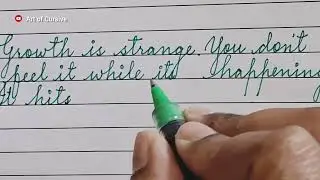 Art of Cursive
Growth is strange. You don't
feel it while its happening
It hits